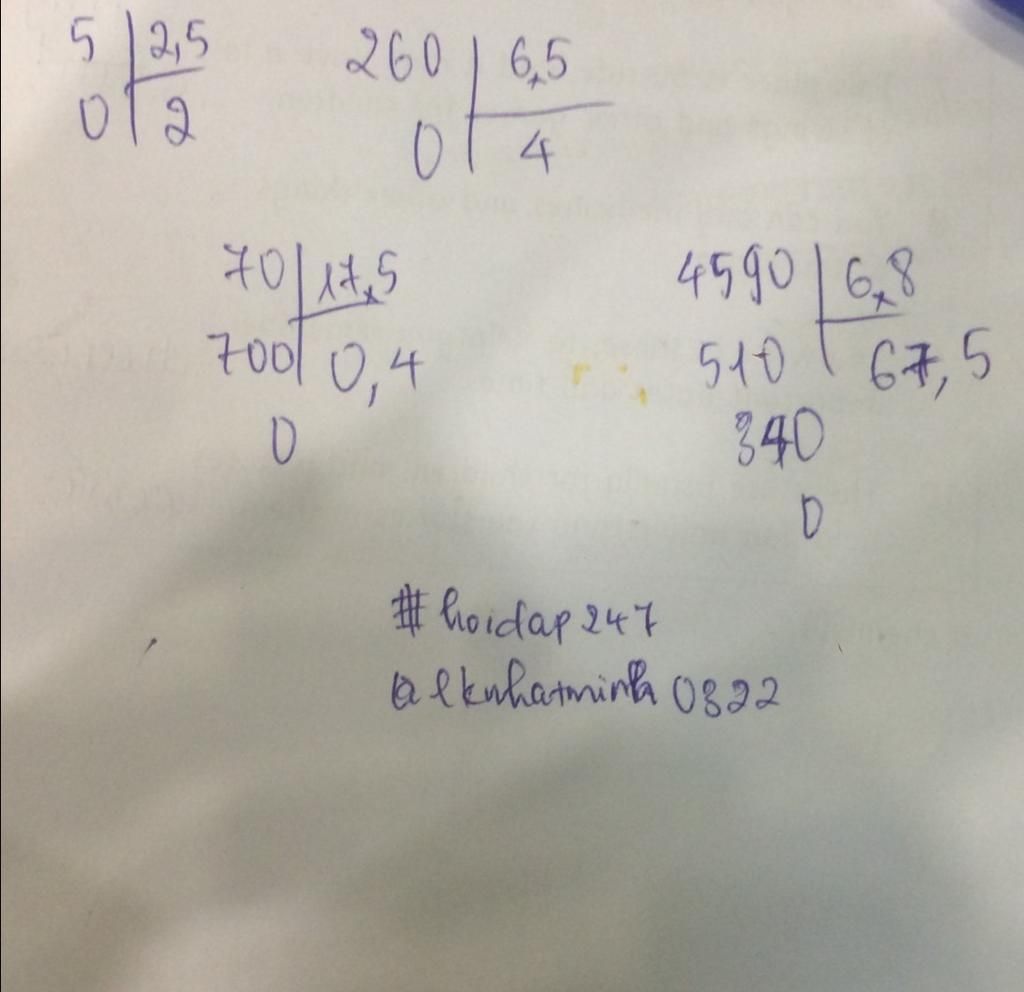 5 2,5 260 6,5
0 2 0 4
70 17,5 4590 6,8
700 0,4 510 67,5
0 340
0
# hoidap247
@lkwhatminh0322